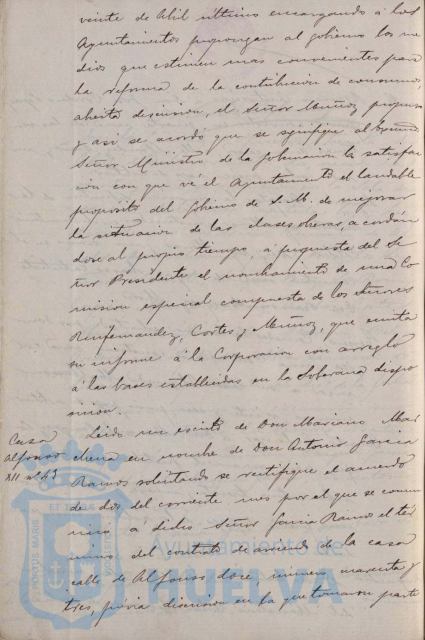 veinte de Abil ultimo encargando á los
Ayuntamientos propongan al gobierno los me
dios que estimen mas convenientes para
la reforma de la contribucion de consumos,
abierta discusion, el Señor Muñoz propuso
y asi se acordó que se signifique al Excmo
Señor Ministro de la Gobernacion la satisfac
cion con que vé el Ayuntamiento el laudable
proposito del Gobierno de S. M. de mejorar
la situacion de las clases obreras, acordán
dose al propio tiempo, á propuesta del Se
ñor Presidente el nombramiento de una Co
mision especial compuesta de los Señores
Renfernandez, Cortes y Muñoz, que emita
su informe á la Corporacion con arreglo
á las bases establecidas en la Soberana dispo
sicion.
Casa
Alfonso
XII nº 43
Leido un escrito de Don Mariano Mar
chena en nombre de Don Antonio Garcia
Ramos solicitando se rectifique el acuerdo
de dos del corriente mes por el que se comu
nicó á dicho Señor Garcia Ramos el tér
mino del contrato de arriendo de la casa
calle de Alfonso doce, numero cuarenta y
tres, previa discusion en la que tomaron parte
PORTUS MARIS
ET TERRE
Ayuntamiento de
HUELVA